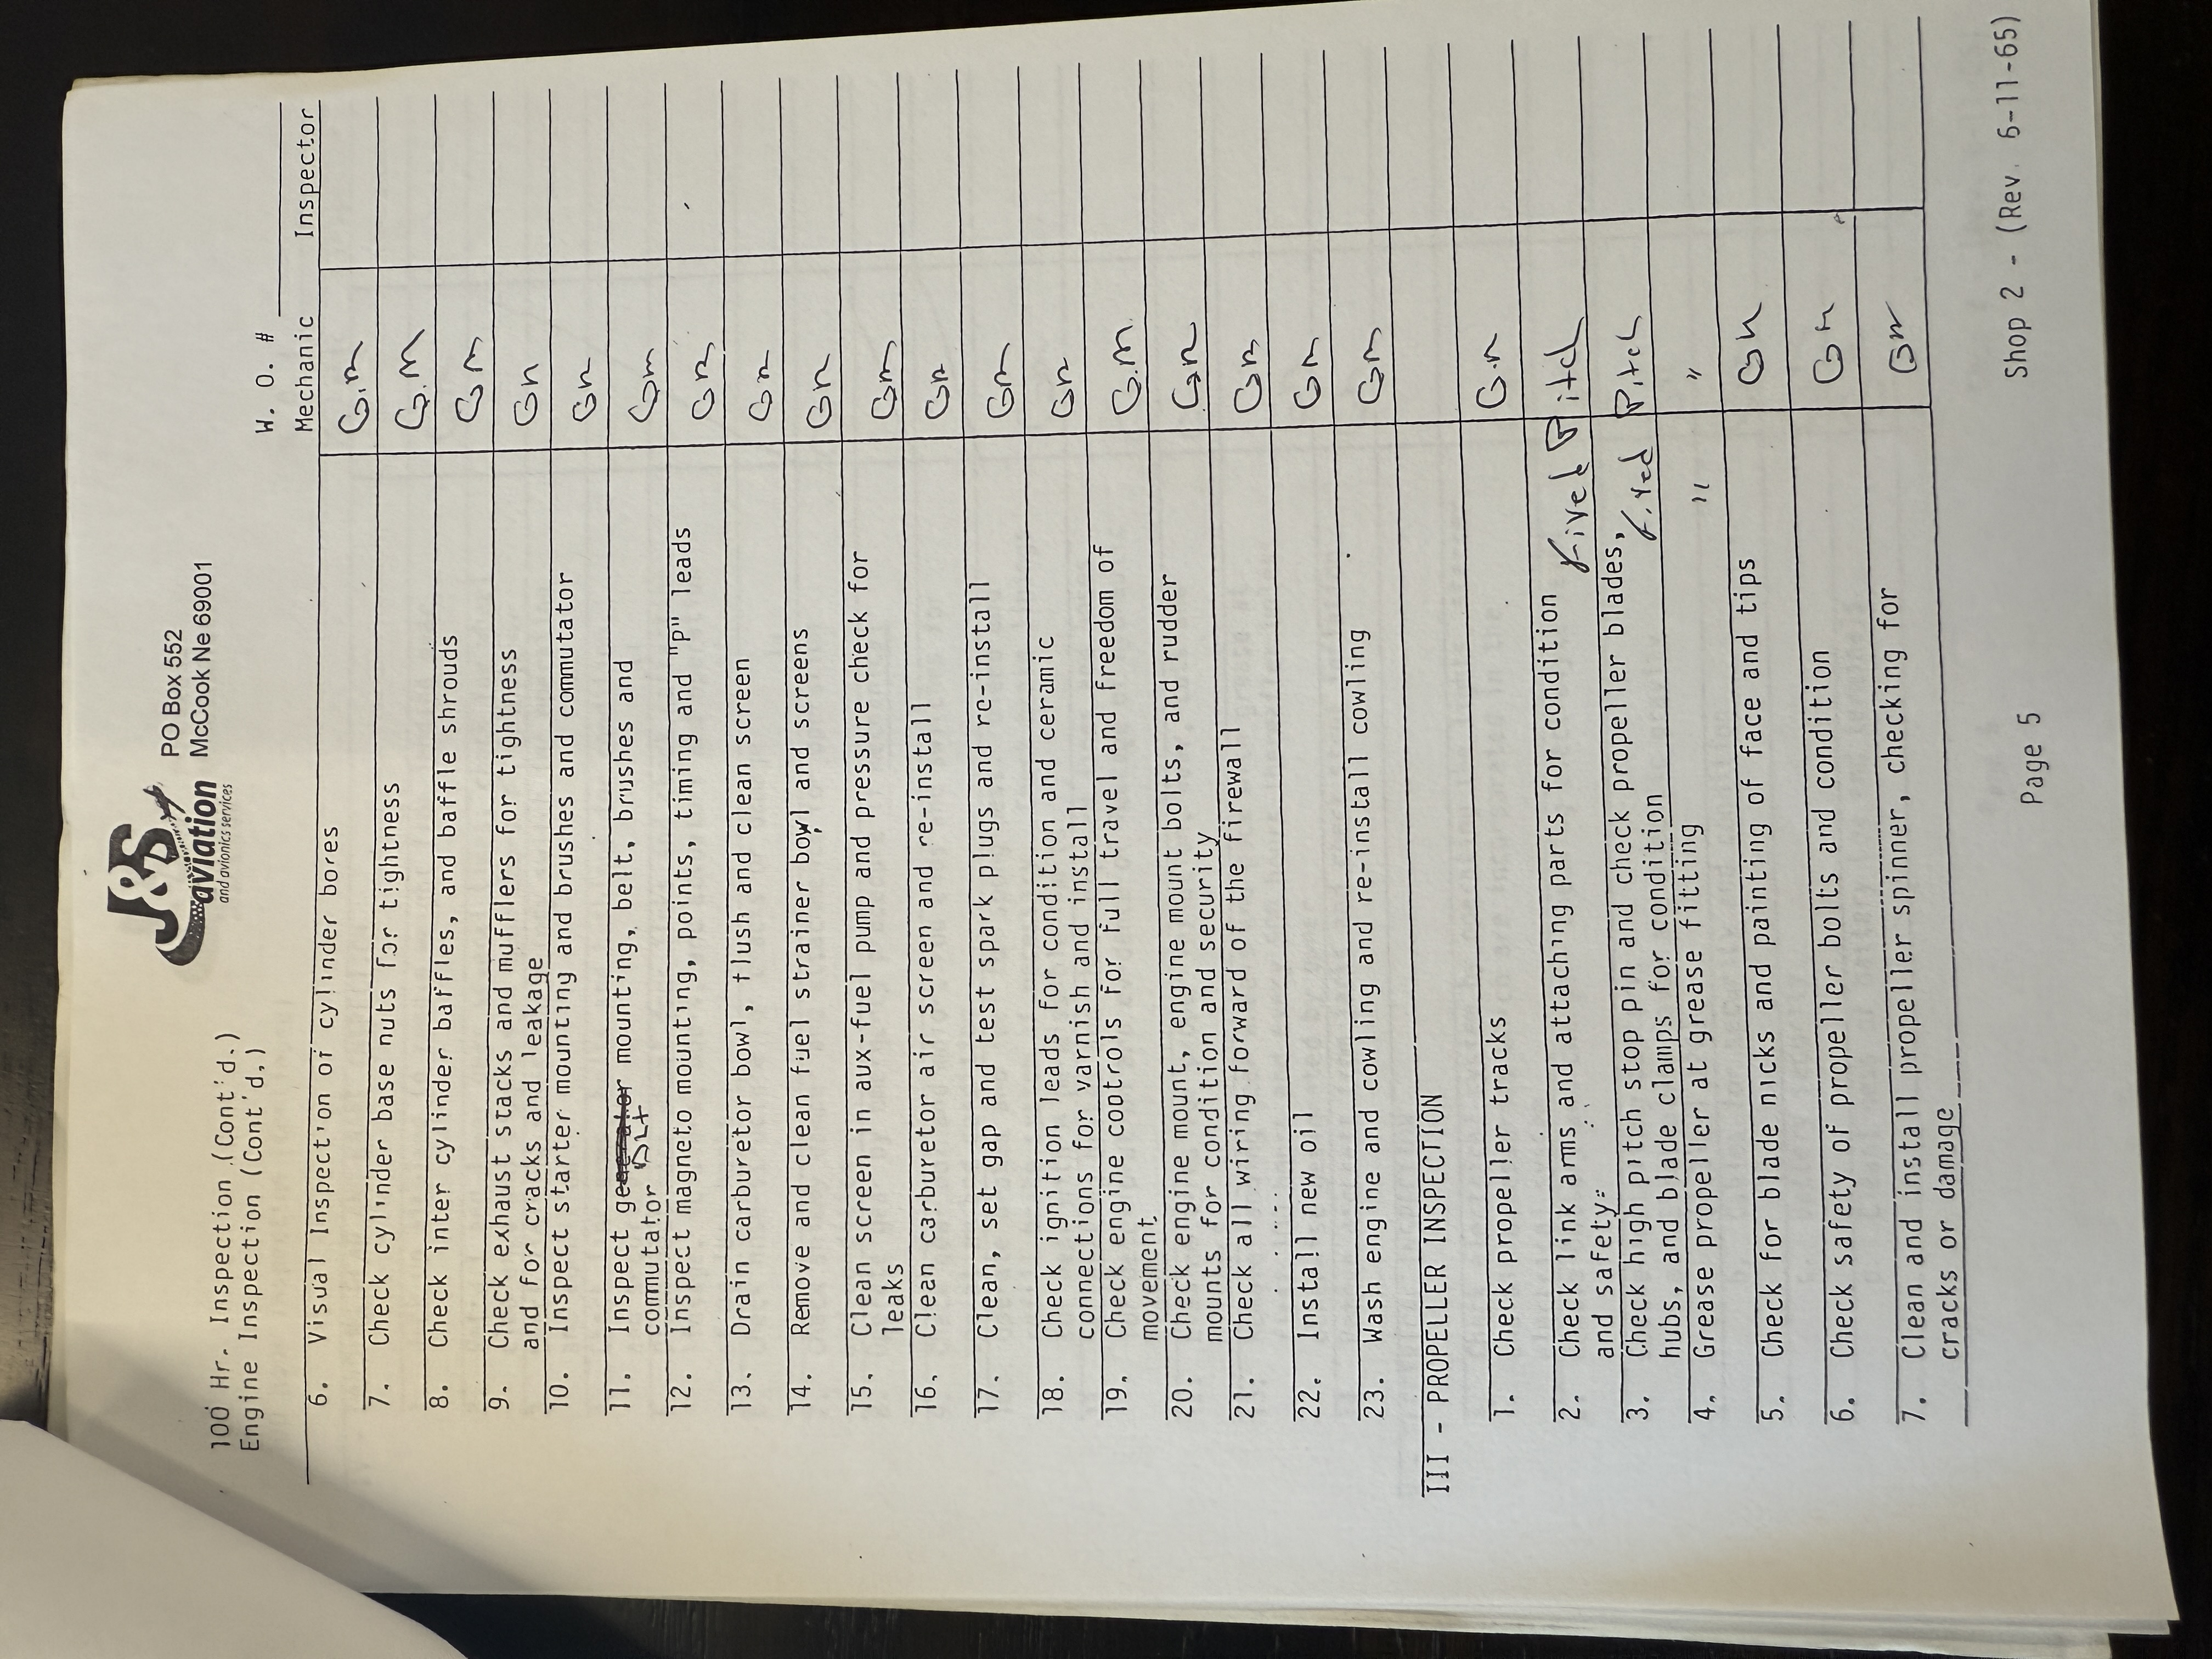 J&S
aviation
and avionics services
PO Box 552
McCook Ne 69001
100 Hr. Inspection (Cont'd.)
Engine Inspection (Cont'd.)
W. O. #
Mechanic Inspector
6. Visual Inspection of cylinder bores G.m
7. Check cylinder base nuts for tightness G.M
8. Check inter cylinder baffles, and baffle shrouds Gm
9. Check exhaust stacks and mufflers for tightness Gm
and for cracks and leakage
10. Inspect starter mounting and brushes and commutator Gm
11. Inspect generator mounting, belt, brushes and Gm
commutator
12. Inspect magneto mounting, points, timing and "P" leads Gm
13. Drain carburetor bowl, flush and clean screen Gm
14. Remove and clean fuel strainer bowl and screens Gm
15. Clean screen in aux-fuel pump and pressure check for Gm
leaks
16. Clean carburetor air screen and re-install Gm
17. Clean, set gap and test spark plugs and re-install Gm
18. Check ignition leads for condition and ceramic Gm
connections for varnish and install
19. Check engine controls for full travel and freedom of G.m
movement
20. Check engine mount, engine mount bolts, and rudder Gm
mounts for condition and security
21. Check all wiring forward of the firewall Gm
22. Install new oil Gm
23. Wash engine and cowling and re-install cowling Gm
III - PROPELLER INSPECTION
1. Check propeller tracks G.m
2. Check link arms and attaching parts for condition Fixed Pitch
and safety
3. Check high pitch stop pin and check propeller blades, Fixed Pitch
hubs, and blade clamps for condition
4. Grease propeller at grease fitting " "
5. Check for blade nicks and painting of face and tips Gm
6. Check safety of propeller bolts and condition Gm
7. Clean and install propeller spinner, checking for Gm
cracks or damage
Page 5
Shop 2 - (Rev. 6-11-65)